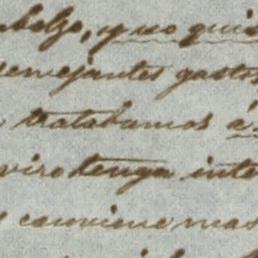 bolzo, y no quis
semejantes gastos
tratabamos á
viro tenga inte
conviene mas